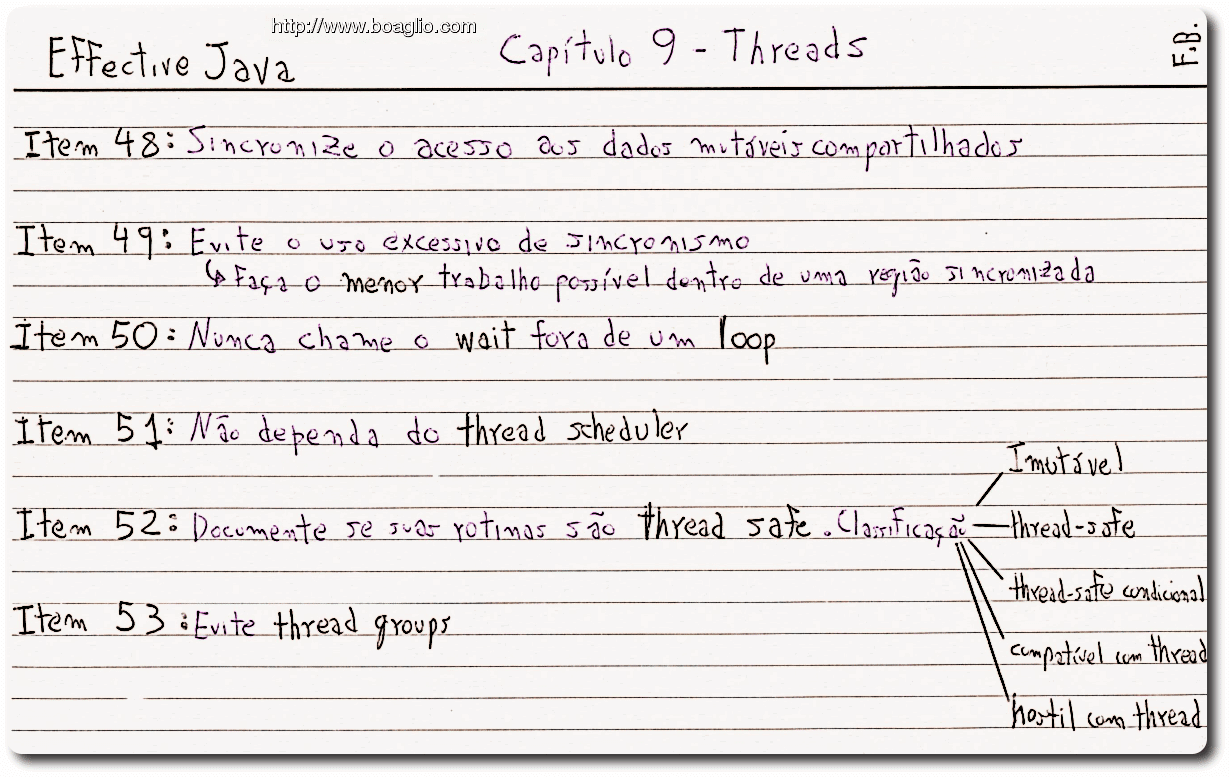 http://www.boaglio.com
Effective Java Capítulo 9 - Threads F.B.
Item 48: Sincronize o acesso aos dados mutáveis compartilhados
Item 49: Evite o uso excessivo de sincronismo
↳ Faça o menor trabalho possível dentro de uma região sincronizada
Item 50: Nunca chame o wait fora de um loop
Item 51: Não dependa do thread scheduler
Imutável
Item 52: Documente se suas rotinas são thread safe. Classificação thread-safe
thread-safe condicional
Item 53: Evite thread groups
compatível com thread
hostil com thread